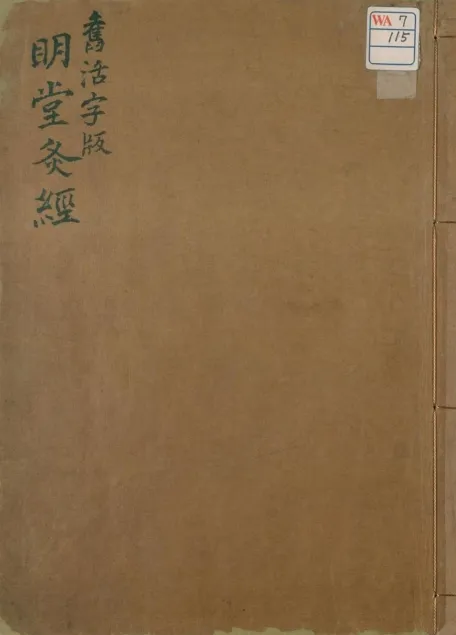 WA 7
115
舊活字版
明堂灸經